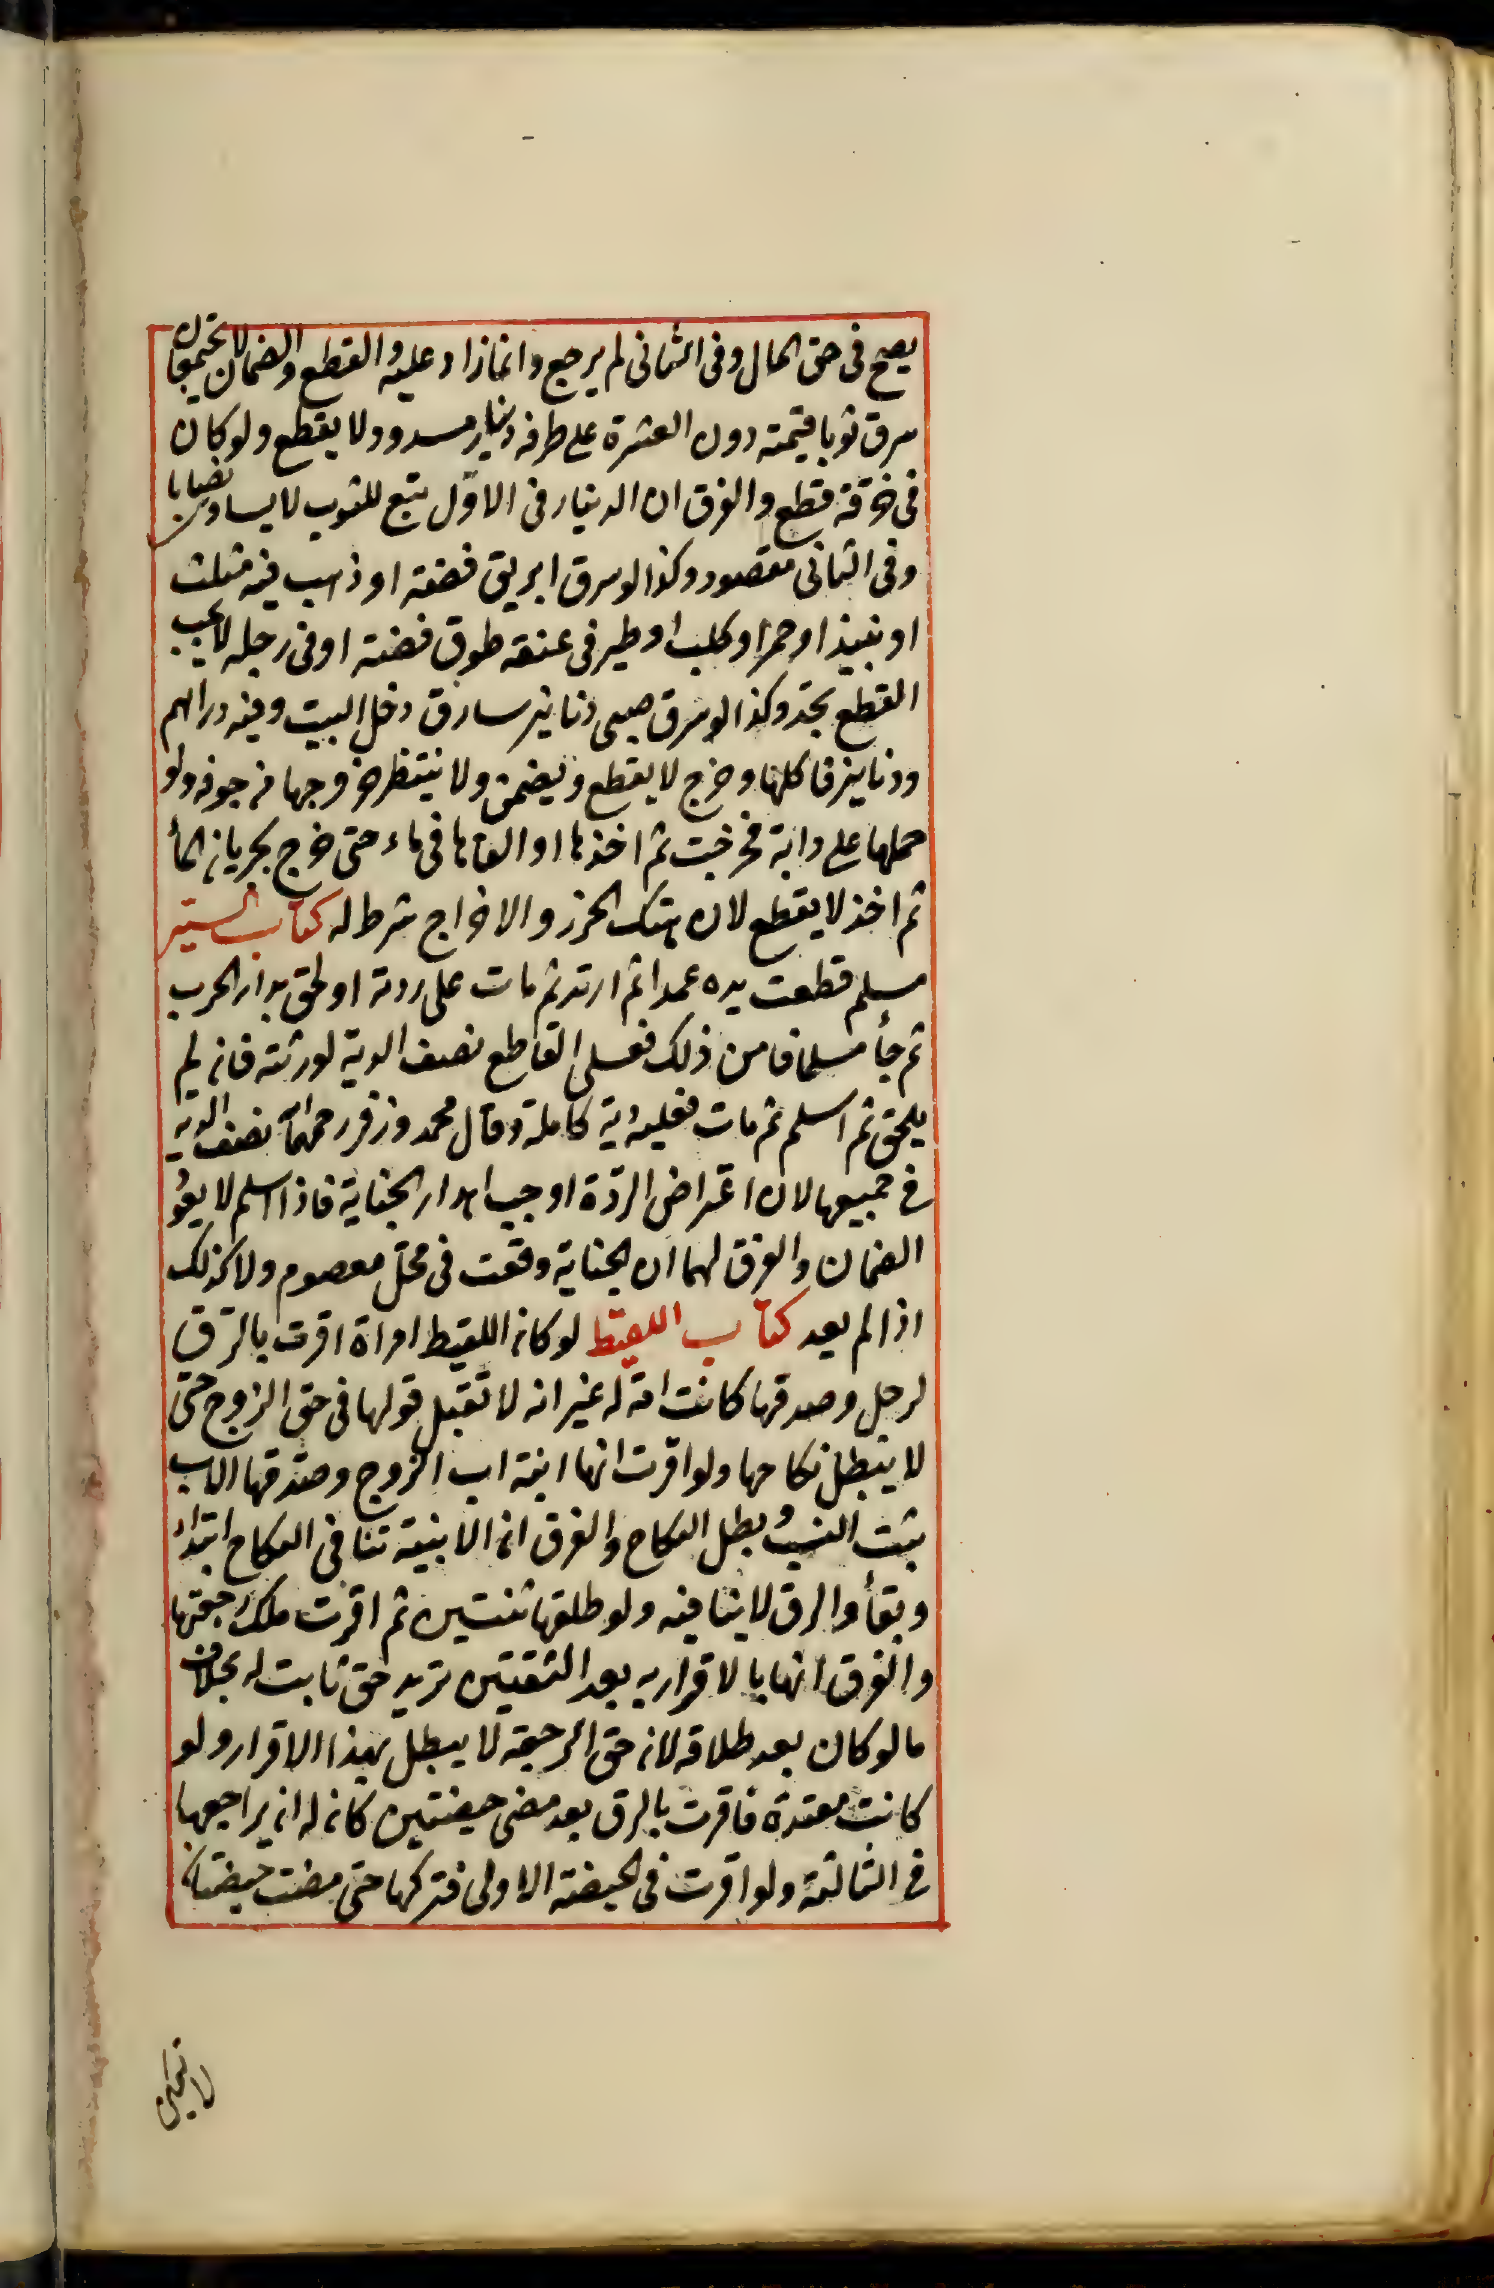 يصح فى حق المال وفى الثانى لم يرجع وانما زاد عليه والقطع والضمان لا يجتمعان
سرق ثوبا قيمته دون العشرة على طرفه دينار مسدود لا يقطع ولو كان
فى خرقة قطع والفرق ان الدينار فى الاوّل تبع للثوب لا يساوى نصابا
وفى الثانى مقصود وكذا لو سرق ابريق فضة او ذهب فيه مثلث
او نبيذ او خمر او كلب او طير فى عنقه طوق فضة او فى رجله لا يجب
القطع بحد وكذا لو سرق صبى دنانير سارق دخل البيت وفيه دراهم
ودنانير فاكلها وخرج لا يقطع ويضمن ولا ينتظر خروجها من جوفه ولو
حملها على دابة فخرجت ثم اخذها او القاها فى ماء حتى خرج بجريان الماء
ثم اخذ لا يقطع لان هتك الحرز والاخراج شرط له كتاب السير
مسلم قطعت يده عمدا ثم ارتد ثم مات على ردته او لحق بدار الحرب
ثم جاء مسلما فمات من ذلك فعلى القاطع نصف الدية لورثته فان لم
يلحق ثم اسلم ثم مات فعليه دية كاملة وقال محمد وزفر رحمهما الله نصف الدية
فى جميعها لان اعتراض الردّة اوجب اهدار الجناية فاذا اسلم لا يعود
الضمان والفرق لهما ان الجناية وقعت فى محلّ معصوم ولا كذلك
اذا لم يعد كتاب اللقيط لو كان اللقيط امراة اقرت بالرّق
لرجل وصدقها كانت امة له غير انه لا تقبل قولها فى حق الزوج حتى
لا يبطل نكاحها ولو اقرت انها ابنة اب الزوج وصدّقها الاب
يثبت النسب وبطل النكاح والفرق ان الابنية تنافى النكاح ابتداء
وبقاء والرق لا ينافيه ولو طلقها ثنتين ثم اقرت ملك رجعتها
والفرق انها بالاقرار به بعد الثنتين تريد حق ثابت له بخلاف
ما لو كان بعد طلاقه لان حق الرجعة لا يبطل بهذا الاقرار ولو
كانت معتدة فاقرت بالرق بعد مضى حيضتين كان له ان يراجعها
فى الثالثة ولو اقرت فى الحيضة الاولى فتركها حتى مضت حيضتان